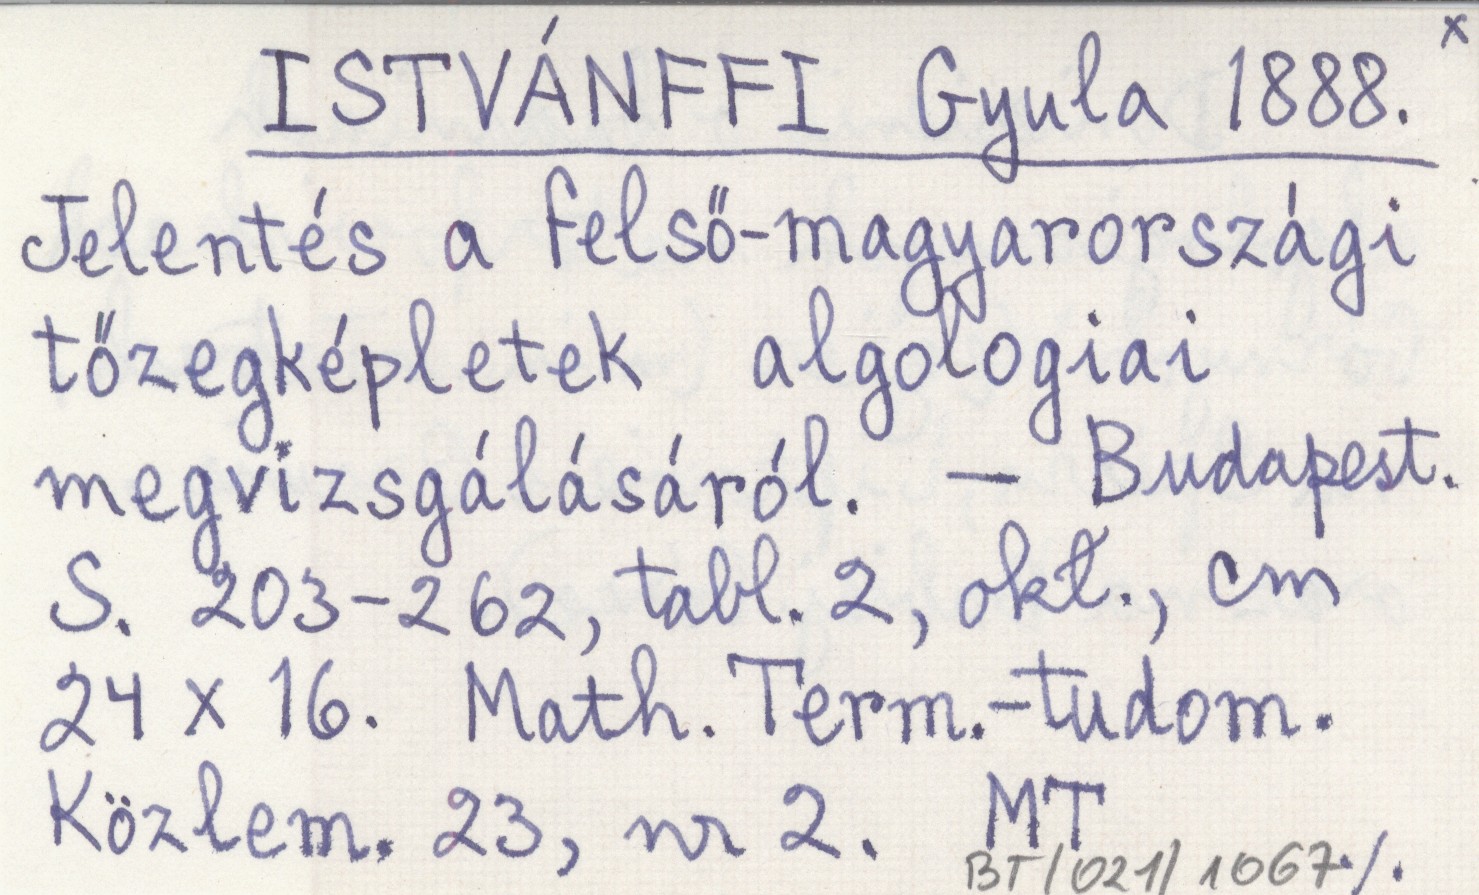 x
ISTVÁNFFI Gyula 1888.
Jelentés a felső-magyarországi
tőzegképletek algologiai
megvizsgálásáról. — Budapest.
S. 203-262, tabl. 2, okł., cm
24 x 16. Math. Term.-tudom.
Közlem. 23, nr 2. MT
BT/021/1067./.